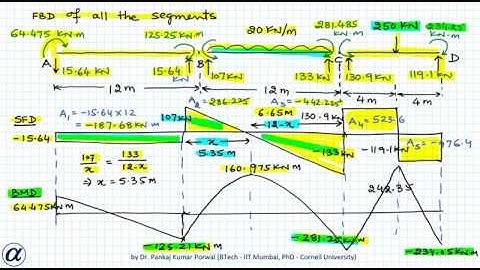 FBD of all the segments
64.475 KN m
125.25 KN m
20 KN/m
281.485 KN m
250 KN
234.25 KN m
A
B
C
D
15.64 KN
15.64 KN
107 KN
133 KN
130.9 KN
119.1 KN
12 m
12 m
4 m
4 m
A₁ = -15.64 x 12
= -187.68 KN m
A₂ = 286.225
A₃ = -442.225
A₄ = 523.6
A₅ = -476.4
SFD
-15.64
107 KN
6.65 m
12-x
x
5.35 m
130.9 KN
-133 KN
-119.1 KN
107/x = 133/12-x
⇒ x = 5.35 m
BMD
64.475 KN m
160.975 KN m
242.35
-125.21 KN m
-281.25 KN m
-234.05 KN m
α
by Dr. Pankaj Kumar Porwal (BTech - IIT Mumbai, PhD - Cornell University)